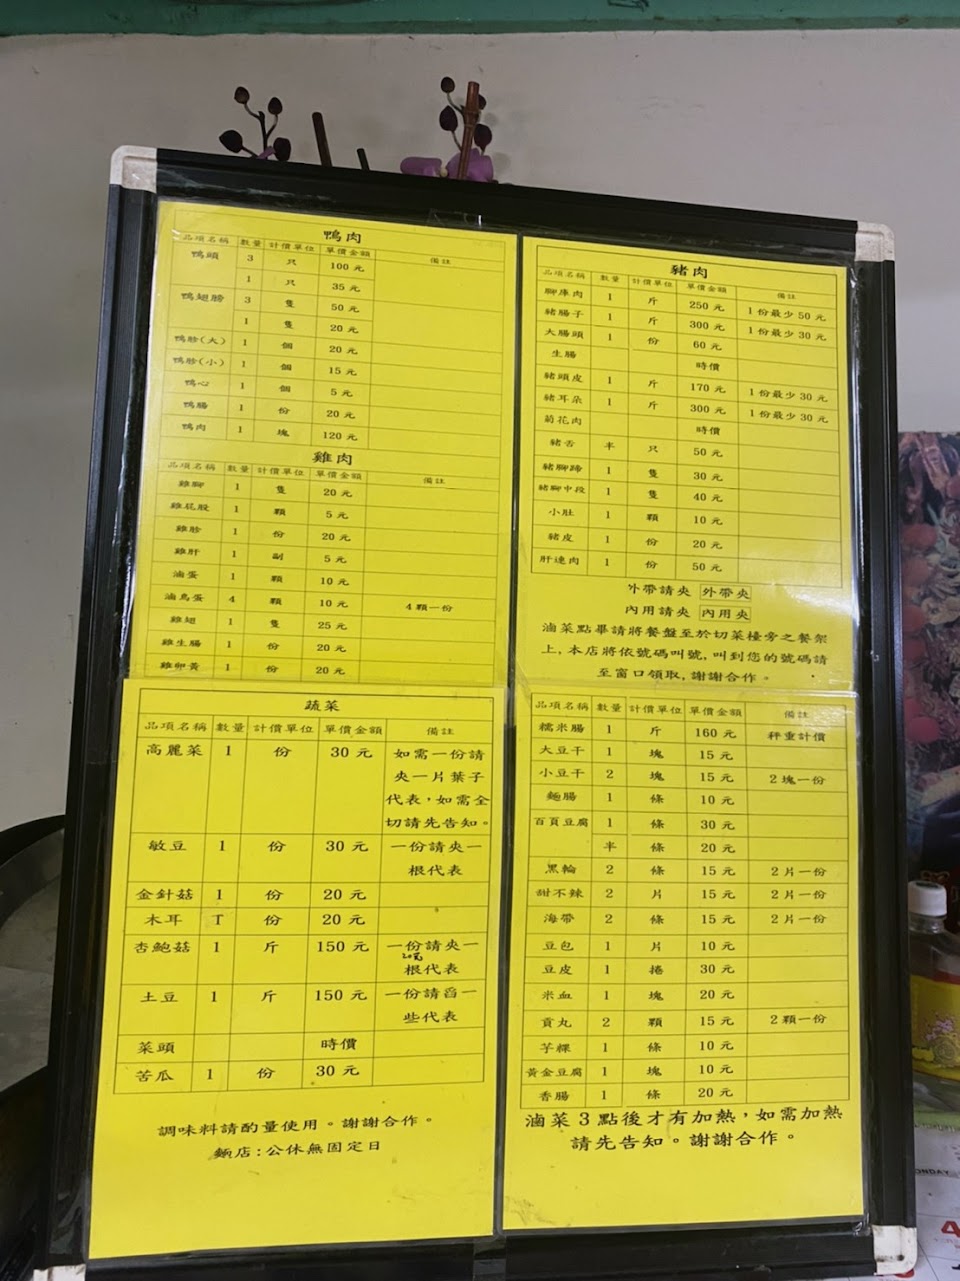 鴨肉
品項名稱 數量 計價單位 單價金額 備註
鴨頭 3 只 100 元
1 只 35 元
鴨翅膀 3 隻 50 元
1 隻 20 元
鴨胗(大) 1 個 20 元
鴨胗(小) 1 個 15 元
鴨心 1 個 5 元
鴨腸 1 份 20 元
鴨肉 1 塊 120 元
雞肉
品項名稱 數量 計價單位 單價金額 備註
雞腳 1 隻 20 元
雞屁股 1 顆 5 元
雞胗 1 份 20 元
雞肝 1 副 5 元
滷蛋 1 顆 10 元
滷鳥蛋 4 顆 10 元 4 顆一份
雞翅 1 隻 25 元
雞生腸 1 份 20 元
雞卵黃 1 份 20 元
豬肉
品項名稱 數量 計價單位 單價金額 備註
腳庫肉 1 斤 250 元 1 份最少 50 元
豬腸子 1 斤 300 元 1 份最少 30 元
大腸頭 1 份 60 元
生腸 時價
豬頭皮 1 斤 170 元 1 份最少 30 元
豬耳朵 1 斤 300 元 1 份最少 30 元
菊花肉 時價
豬舌 半 只 50 元
豬腳蹄 1 隻 30 元
豬腳中段 1 隻 40 元
小肚 1 顆 10 元
豬皮 1 份 20 元
肝連肉 1 份 50 元
外帶請夾 外帶夾
內用請夾 內用夾
滷菜點畢請將餐盤至於切菜檯旁之餐架
上,本店將依號碼叫號,叫到您的號碼請
至窗口領取,謝謝合作。
蔬菜
品項名稱 數量 計價單位 單價金額 備註
高麗菜 1 份 30 元 如需一份請
夾一片葉子
代表,如需全
切請先告知。
敏豆 1 份 30 元 一份請夾一
根代表
金針菇 1 份 20 元
木耳 T 份 20 元
杏鮑菇 1 斤 150 元 一份請夾一
20元
根代表
土豆 1 斤 150 元 一份請舀一
些代表
菜頭 時價
苦瓜 1 份 30 元
調味料請酌量使用。謝謝合作。
麵店:公休無固定日
品項名稱 數量 計價單位 單價金額 備註
糯米腸 1 斤 160 元 秤重計價
大豆干 1 塊 15 元
小豆干 2 塊 15 元 2 塊一份
麵腸 1 條 10 元
百頁豆腐 1 條 30 元
半 條 20 元
黑輪 2 條 15 元 2 片一份
甜不辣 2 片 15 元 2 片一份
海帶 2 條 15 元 2 片一份
豆包 1 片 10 元
豆皮 1 捲 30 元
米血 1 塊 20 元
貢丸 2 顆 15 元 2 顆一份
芋粿 1 條 10 元
黃金豆腐 1 塊 10 元
香腸 1 條 20 元
滷菜 3 點後才有加熱,如需加熱
請先告知。謝謝合作。